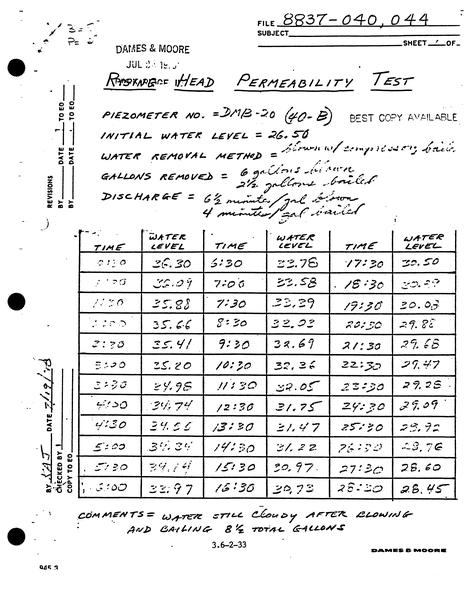 FILE 8837-040,044
SUBJECT
SHEET OF
DAMES & MOORE
HEAD PERMEABILITY TEST
PIEZOMETER NO. = DMB-20 (40-B)
BEST COPY AVAILABLE
INITIAL WATER LEVEL = 26.50
WATER REMOVAL METHOD = blown w/ compressor,
GALLONS REMOVED = 6 gallons blown
2½ gallons bailed
DISCHARGE = 6½ minutes/gal blown
4 minutes/gal bailed
REVISIONS
BY DATE TO EO
BY DATE TO EO
TIME WATER LEVEL TIME WATER LEVEL TIME WATER LEVEL
36.30 6:30 33.78 17:30 30.50
7:00 33.58 18:30
35.88 7:30 19:30 30.08
35.66 8:30 20:30 29.88
35.41 9:30 32.69 21:30 29.68
35.20 10:30 22:30 29.47
11:30 32.05 23:30 29.28
4:00 34.74 12:30 31.75 24:30 29.09
4:30 13:30 31.47 25:30
5:00 14:30 31.22
5:30 15:30 30.97 27:30 28.60
16:30 30.73 28:30 28.45
BY DATE
CHECKED BY
COPY TO EO
COMMENTS = WATER STILL CLOUDY AFTER BLOWING
AND BAILING 8½ TOTAL GALLONS
3.6-2-33
DAMES & MOORE